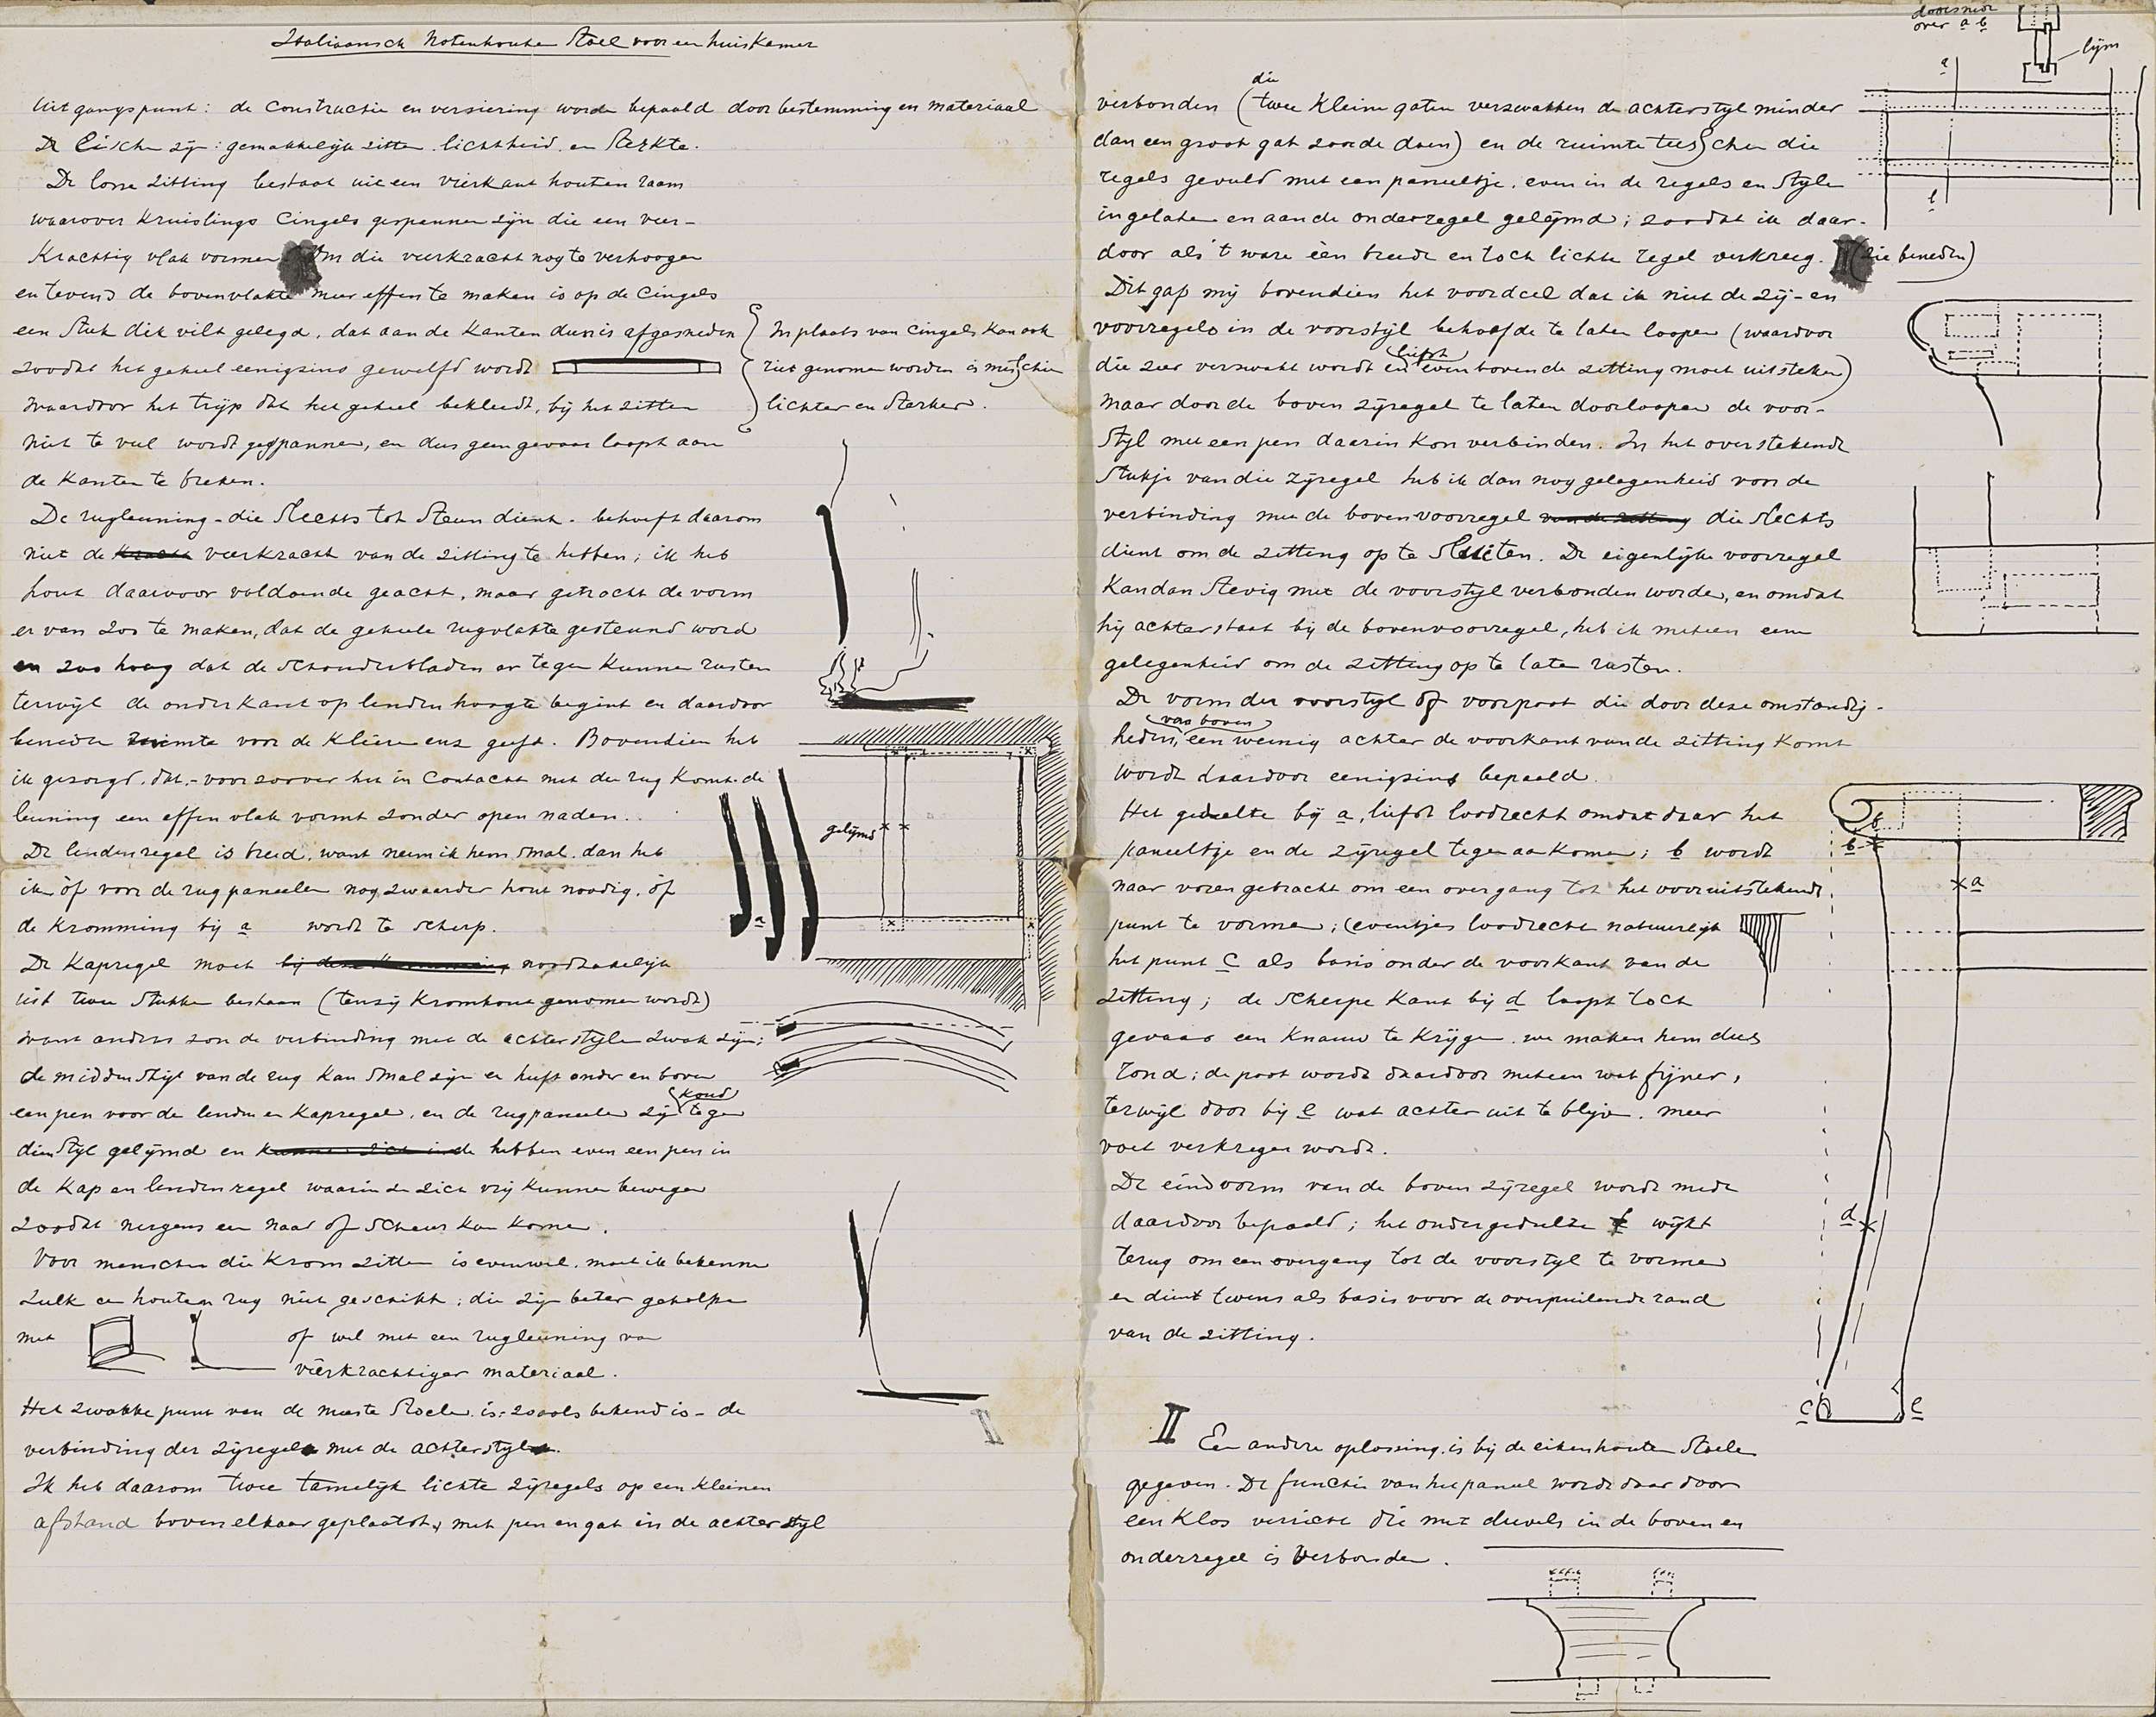 Italiaansch Notenhouten Stoel voor een huiskamer
Uitgangspunt: de constructie en versiering worden bepaald door bestemming en materiaal
De Eischen zijn: gemakkelijk zitten. lichtheid. en Sterkte.
De losse zitting bestaat uit een vierkant houten raam
waarover kruislings Cingels gespannen zijn die een veer-
krachtig vlak vormen Om die veerkracht nog te verhoogen
en tevens de bovenvlakte meer effen te maken is op de Cingels
een Stuk dik vilt gelegd, dat aan de kanten dun is afgesneden
zoodat het geheel eenigzins gewelfd wordt
waardoor het trijp dat het geheel bekleedt, bij het zitten
niet te veel wordt gespannen, en dus geen gevaar loopt aan
de kanten te breken.
In plaats van Cingels kan ook
riet genomen worden is misschien
lichter en Sterker.
De rugleuning - die Slechts tot Steun dient - behoeft daarom
niet de kracht veerkracht van de zitting te hebben; ik heb
hout daarvoor voldoende geacht, maar getracht de vorm
er van zoo te maken, dat de geheele rugvlakte gesteund word
en zoo hoog dat de schouderbladen er tegen kunnen rusten
terwijl de onderkant op lendenhoogte begint en daardoor
beneden ruimte voor de kleeren enz geeft. Bovendien heb
ik gezorgd, dat - voor zoover het in Contact met de rug komt - de
leuning een effen vlak vormt zonder open naden.
De lendenregel is breed, want neem ik hem smal. dan heb
ik òf voor de rugpaneelen nog zwaarder hout noodig, òf
de kromming bij a wordt te scherp.
De Kapregel moet bij deze kromming noodzakelijk
uit twee Stukken bestaan (tenzij kromhout genomen wordt)
want anders zou de verbinding met de achterstijlen zwak zijn;
de middenstijl van de rug kan smal zijn en heeft onder en boven
een pen voor de lenden en Kapregel, en de rugpaneelen zijn koud tegen
dien Stijl gelijmd en kunnen zich in de hebben even een pen in
de Kap en lendenregel waarin ze zich vrij kunnen bewegen
zoodat nergens een naad of scheur kan komen.
Voor menschen die krom zitten is evenwel, moet ik bekennen
zulk een houten rug niet geschikt; die zijn beter geholpen
met of wel met een rugleuning van
veerkrachtiger materiaal.
Het zwakke punt van de meeste Stoelen is - zooals bekend is - de
verbinding der zijregels met de achterstijlen.
Ik heb daarom twee tamelijk lichte zijregels op een kleinen
afstand boven elkaar geplaatst, met pen en gat in de achterstijl
gelijmd
a
II
verbonden (twee kleine gaten verzwakken die de achterstijl minder
dan een groot gat zoude doen) en de ruimte tusschen die
regels gevuld met een paneeltje, even in de regels en Stijlen
ingelaten en aan de onderregel gelijmd; zoodat ik daar-
door als 't ware één breede en toch lichte regel verkreeg. II (zie beneden)
Dit gaf mij bovendien het voordeel dat ik niet de zij- en
voorregels in de voorstijl behoefde te laten loopen (waardoor
die zeer verzwakt wordt en liefst even boven de zitting moet uitsteken)
maar door de boven zijregel te laten doorloopen de voor-
Stijl met een pen daarin kon verbinden. In het overstekende
Stukje van die zijregel heb ik dan nog gelegenheid voor de
verbinding met de bovenvoorregel van de zitting die slechts
dient om de zitting op te Sluiten. De eigenlijke voorregel
kan dan Stevig met de voorstijl verbonden worden, en omdat
hij achter staat bij de bovenvoorregel, heb ik meteen een
gelegenheid om de zitting op te laten rusten.
De vorm der voorstijl of voorpoot die door deze omstandig-
heden, van boven een weinig achter de voorkant van de zitting komt
wordt daardoor eenigzins bepaald.
Het gedeelte bij a, liefst loodrecht omdat daar het
paneeltje en de zijregel tegen aan komen; b wordt
naar voren gebracht om een overgang tot het vooruitstekende
punt te vormen; (eventjes loodrecht natuurlijk
het punt C als basis onder de voorkant van de
zitting; de scherpe kant bij d loopt toch
gevaar een knauw te krijgen. we maken hem dus
rond; de poot wordt daardoor meteen wat fijner,
terwijl door bij e wat achter uit te blijven. meer
voet verkregen wordt.
De eindvorm van de boven zijregel wordt mede
daardoor bepaald; het ondergedeelte f wijkt
terug om een overgang tot de voorstijl te vormen
en dient tevens als basis voor de overpuilende rand
van de zitting.
II Een andere oplossing is bij de eikenhouten Stoelen
gegeven. De functie van het paneel wordt daar door
een klos verricht die met deuvels in de boven en
onderregel is verbonden.
doorsnede
over a b
lijm
a
b
f
b
a
d
c
e